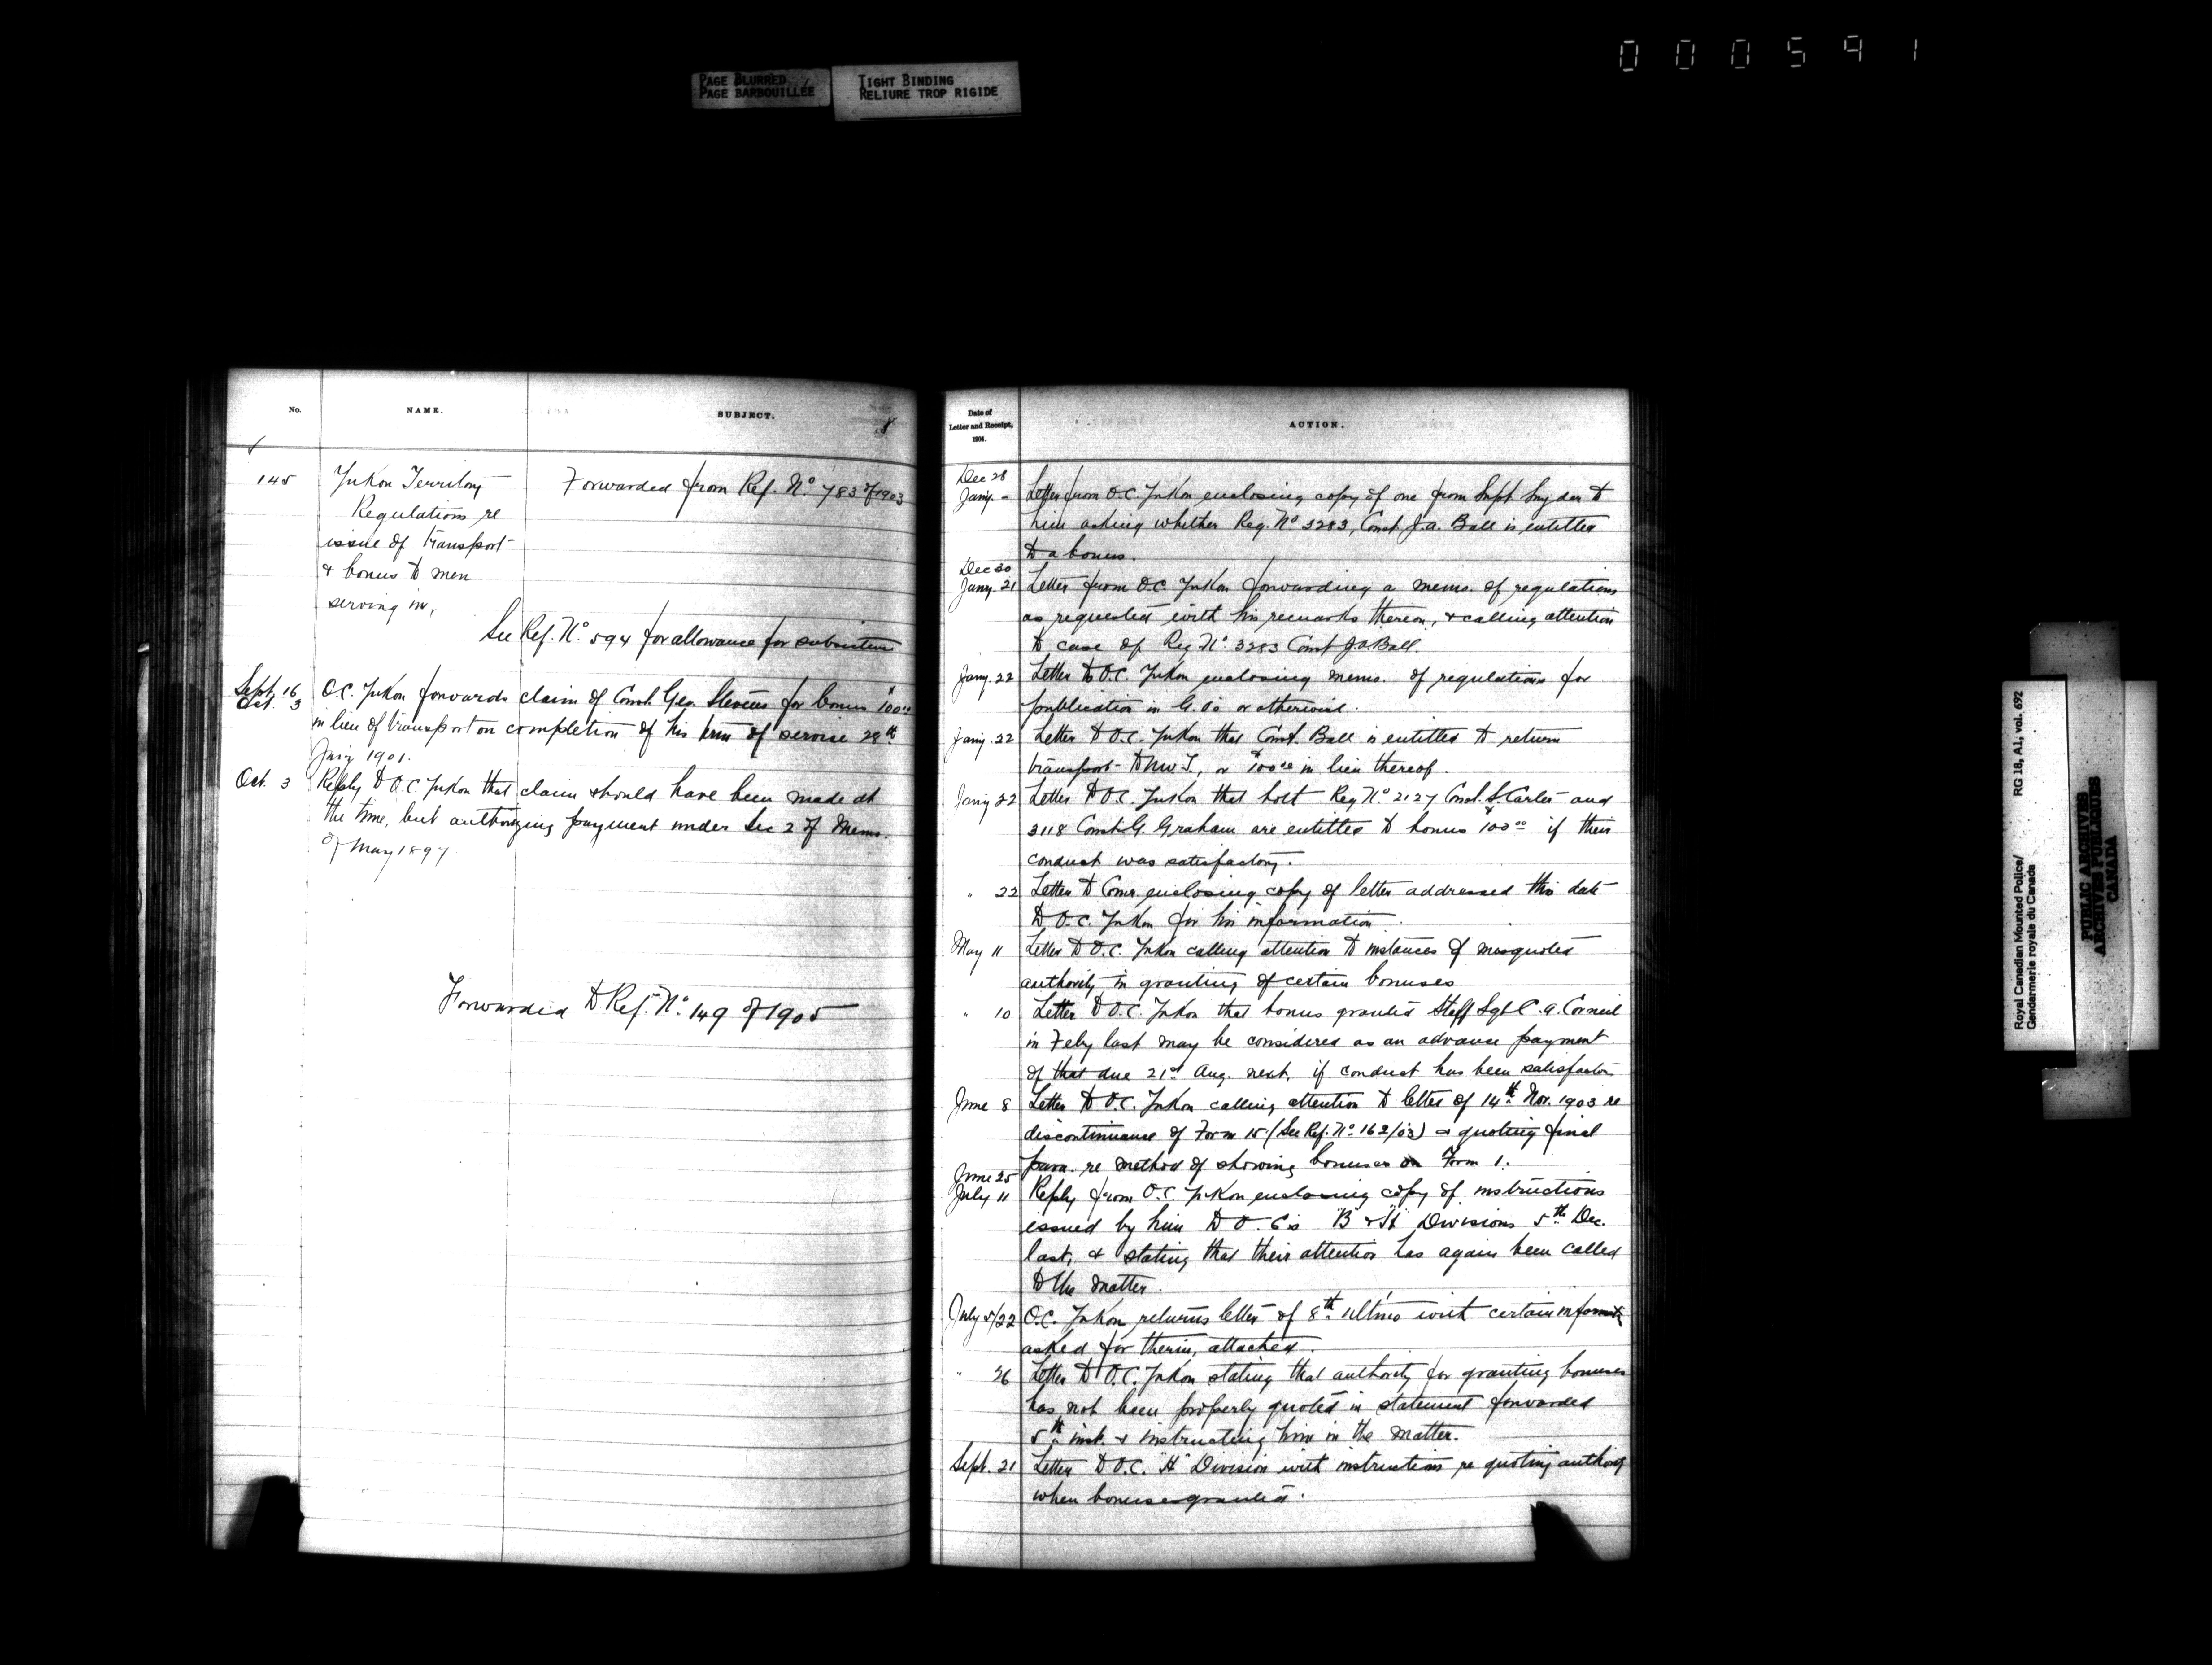 000591
PAGE BLURRED
PAGE BARBOUILLÉE
TIGHT BINDING
RELIURE TROP RIGIDE
No.
NAME.
SUBJECT.
145
Yukon Territory
Regulations re
issue of Transport
& bonus to men
serving in,
Forwarded from Ref. No. 783 of 1903
See Ref. No. 594 for allowance for subsistence
Sept. 16
Oct. 3
O.C. Yukon forwards claim of Const. Geo. Stevens for bonus $100.00
in lieu of transport on completion of his term of service 29th
Jany 1901.
Oct. 3
Reply to O.C. Yukon that claim should have been made at
the time, but authorizing payment under Sec 2 of Memo.
of May 1897
Forwarded to Ref. No. 149 of 1905
Date of
Letter and Receipt,
1904.
ACTION.
Dec 28
Jany. - Letter from O.C. Yukon enclosing copy of one from Supt. Snyder to
him asking whether Reg. No. 3283, Const. J.A. Ball is entitled
to a bonus.
Dec 30
Jany. 21 Letter from O.C. Yukon forwarding a memo. of regulations
as requested with his remarks thereon, & calling attention
to case of Reg No. 3283 Const J.A. Ball.
Jany. 22 Letter to O.C. Yukon enclosing memo. of regulations for
publication in G.O's or otherwise.
Jany. 22 Letter to O.C. Yukon that Const. Ball is entitled to return
transport to N.W.T., or $100.00 in lieu thereof.
Jany 22 Letter to O.C. Yukon that both Reg No. 2127 Const. S. Carter and
3118 Const. G. Graham are entitled to bonus $100.00 if their
conduct was satisfactory.
" 22 Letter to Comr. enclosing copy of letter addressed this date
to O.C. Yukon for his information.
May 11 Letter to O.C. Yukon calling attention to instances of misquoted
authority in granting of certain bonuses
" 10 Letter to O.C. Yukon that bonus granted Staff Sgt C.A. Corneil
in Feby last may be considered as an advance payment
of that due 21st Aug. next, if conduct has been satisfactory
June 8 Letter to O.C. Yukon calling attention to letter of 14th Nov. 1903 re
discontinuance of Form 15 (See Ref. No. 162/03) & quoting final
para. re method of showing bonuses on Form 1.
June 25
July 11 Reply from O.C. Yukon enclosing copy of instructions
issued by him to O.C's "B" & "H" Divisions 5th Dec.
last, & stating that their attention has again been called
to the matter.
July 5/22 O.C. Yukon returns letter of 8th ultimo with certain information
asked for therein, attached.
" 26 Letter to O.C. Yukon stating that authority for granting bonuses
has not been properly quoted in statement forwarded
5th inst. & instructing him in the matter.
Sept. 21 Letter to O.C. "H" Division with instructions re quoting authority
when bonuses granted.
Royal Canadian Mounted Police/ RG 18, A1, vol. 692
Gendarmerie royale du Canada
PUBLIC ARCHIVES
ARCHIVES PUBLIQUES
CANADA